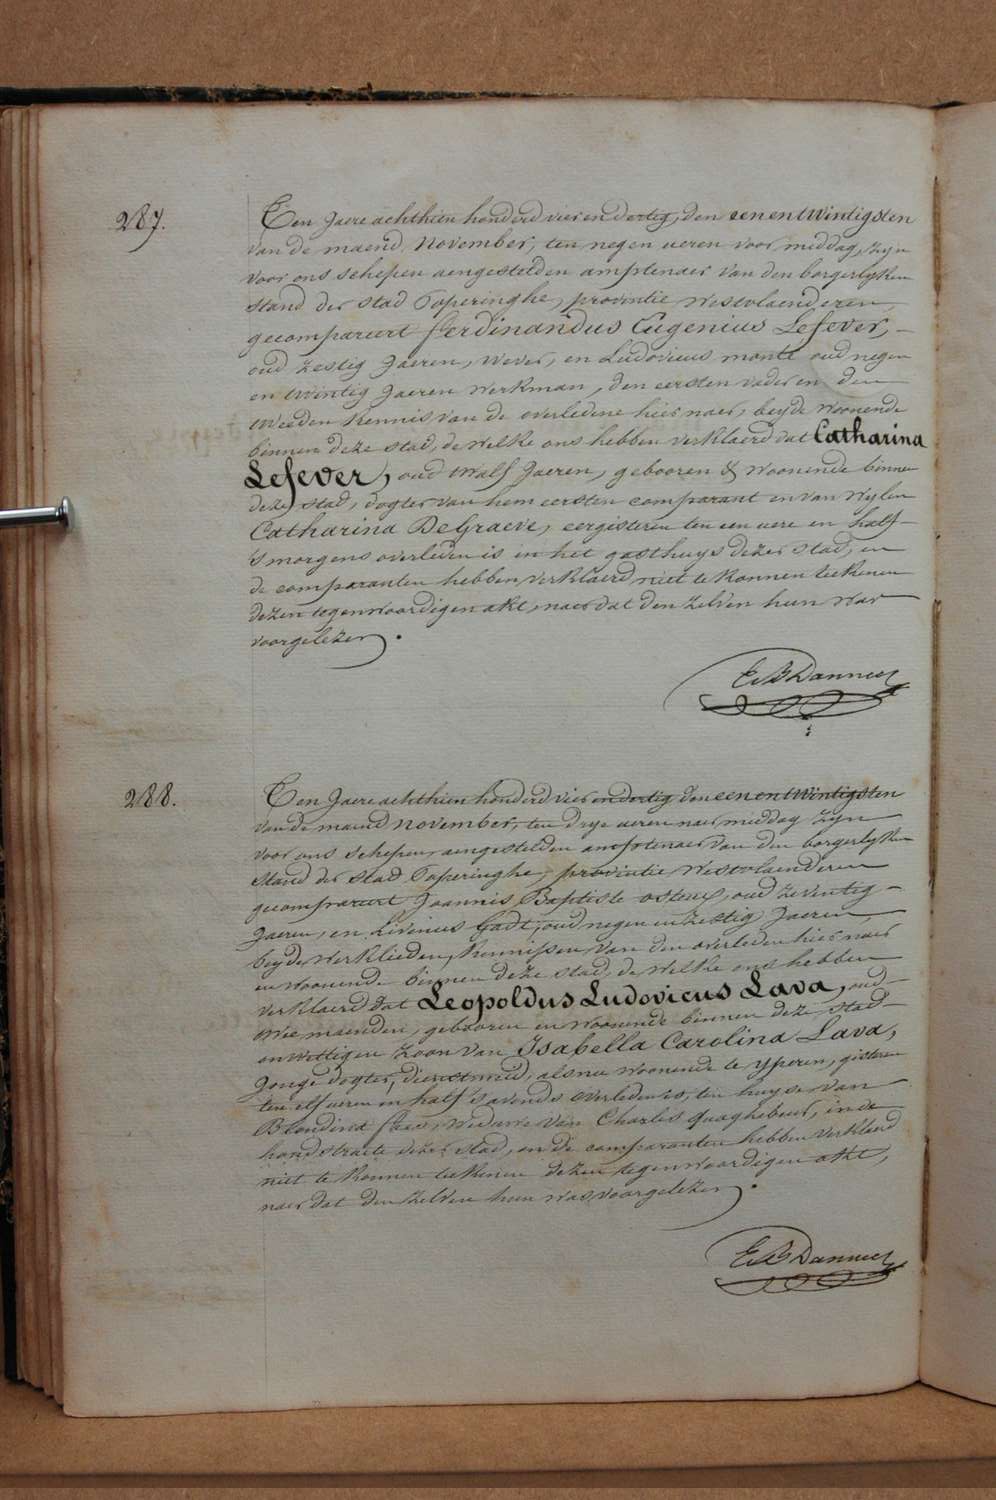 287.
Ten Jaere achthien honderd vier en dertig, den eenentWintigsten
van de maend November, ten negen ueren voor middag, zyn
voor ons schepen aengestelden amptenaer van den borgerlyken
stand der stad Poperinghe, provintie Westvlaenderen,
gecompareert Ferdinandus Eugenius Lefever, –
oud zestig Jaeren, wever, en Ludovicus monte oud negen
en twintig Jaeren werkman, den eersten vader en den
tweeden kennis van de overledene hier naer, beyde woonende
binnen deze stad, de welke ons hebben verklaerd dat Catharina
Lefever, oud twalf Jaeren, gebooren & woonende binnen
deze stad, dogter van hem eersten comparant en van wylen
Catharina DeGraeve, eergisteren ten een uere en half –
's morgens overleden is in het gasthuys dezer stad, en
de comparanten hebben verklaerd niet te konnen teekenen
dezen tegenwoordigen akt, naer dat den zelven hun was
voorgelezen.
E.B Danneel
288.
Ten Jaere achthien honderd vier en dertig den eenentWintigsten
van de maend November, ten drye ueren naer middag zyn
voor ons schepen, aengestelden amptenaer van den borgerlyken
stand der stad Poperinghe, provintie Westvlaenderen
gecompareert Joannis Baptiste osteux, oud zeventig –
Jaeren, en Livinus Gadt, oud negen en zestig Jaeren,
beyde werklieden, kennissen van den overleden hier naer
en woonende binnen deze stad, de welke ons hebben
verklaerd dat Leopoldus Ludovicus Lava, oud –
twee maenden, gebooren en woonende binnen deze stad –
onwettigen zoon van Isabella Carolina Lava,
Jonge dogter, dienstmeid, als nu woonende te yperen, gisteren
ten elf ueren en half 's avonds overleden is, ten huyse van
Blondina faes, weduwe van Charles Quaghebeur, in de
hondstraete dezer stad, en de comparanten hebben verklaerd
niet te konnen teekenen dezen tegenwoordigen akt,
naer dat den zelven hun was voorgelezen.
E.B Danneel